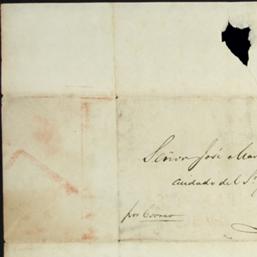 Señor José Mar
Cuidado del S.r
por Correo